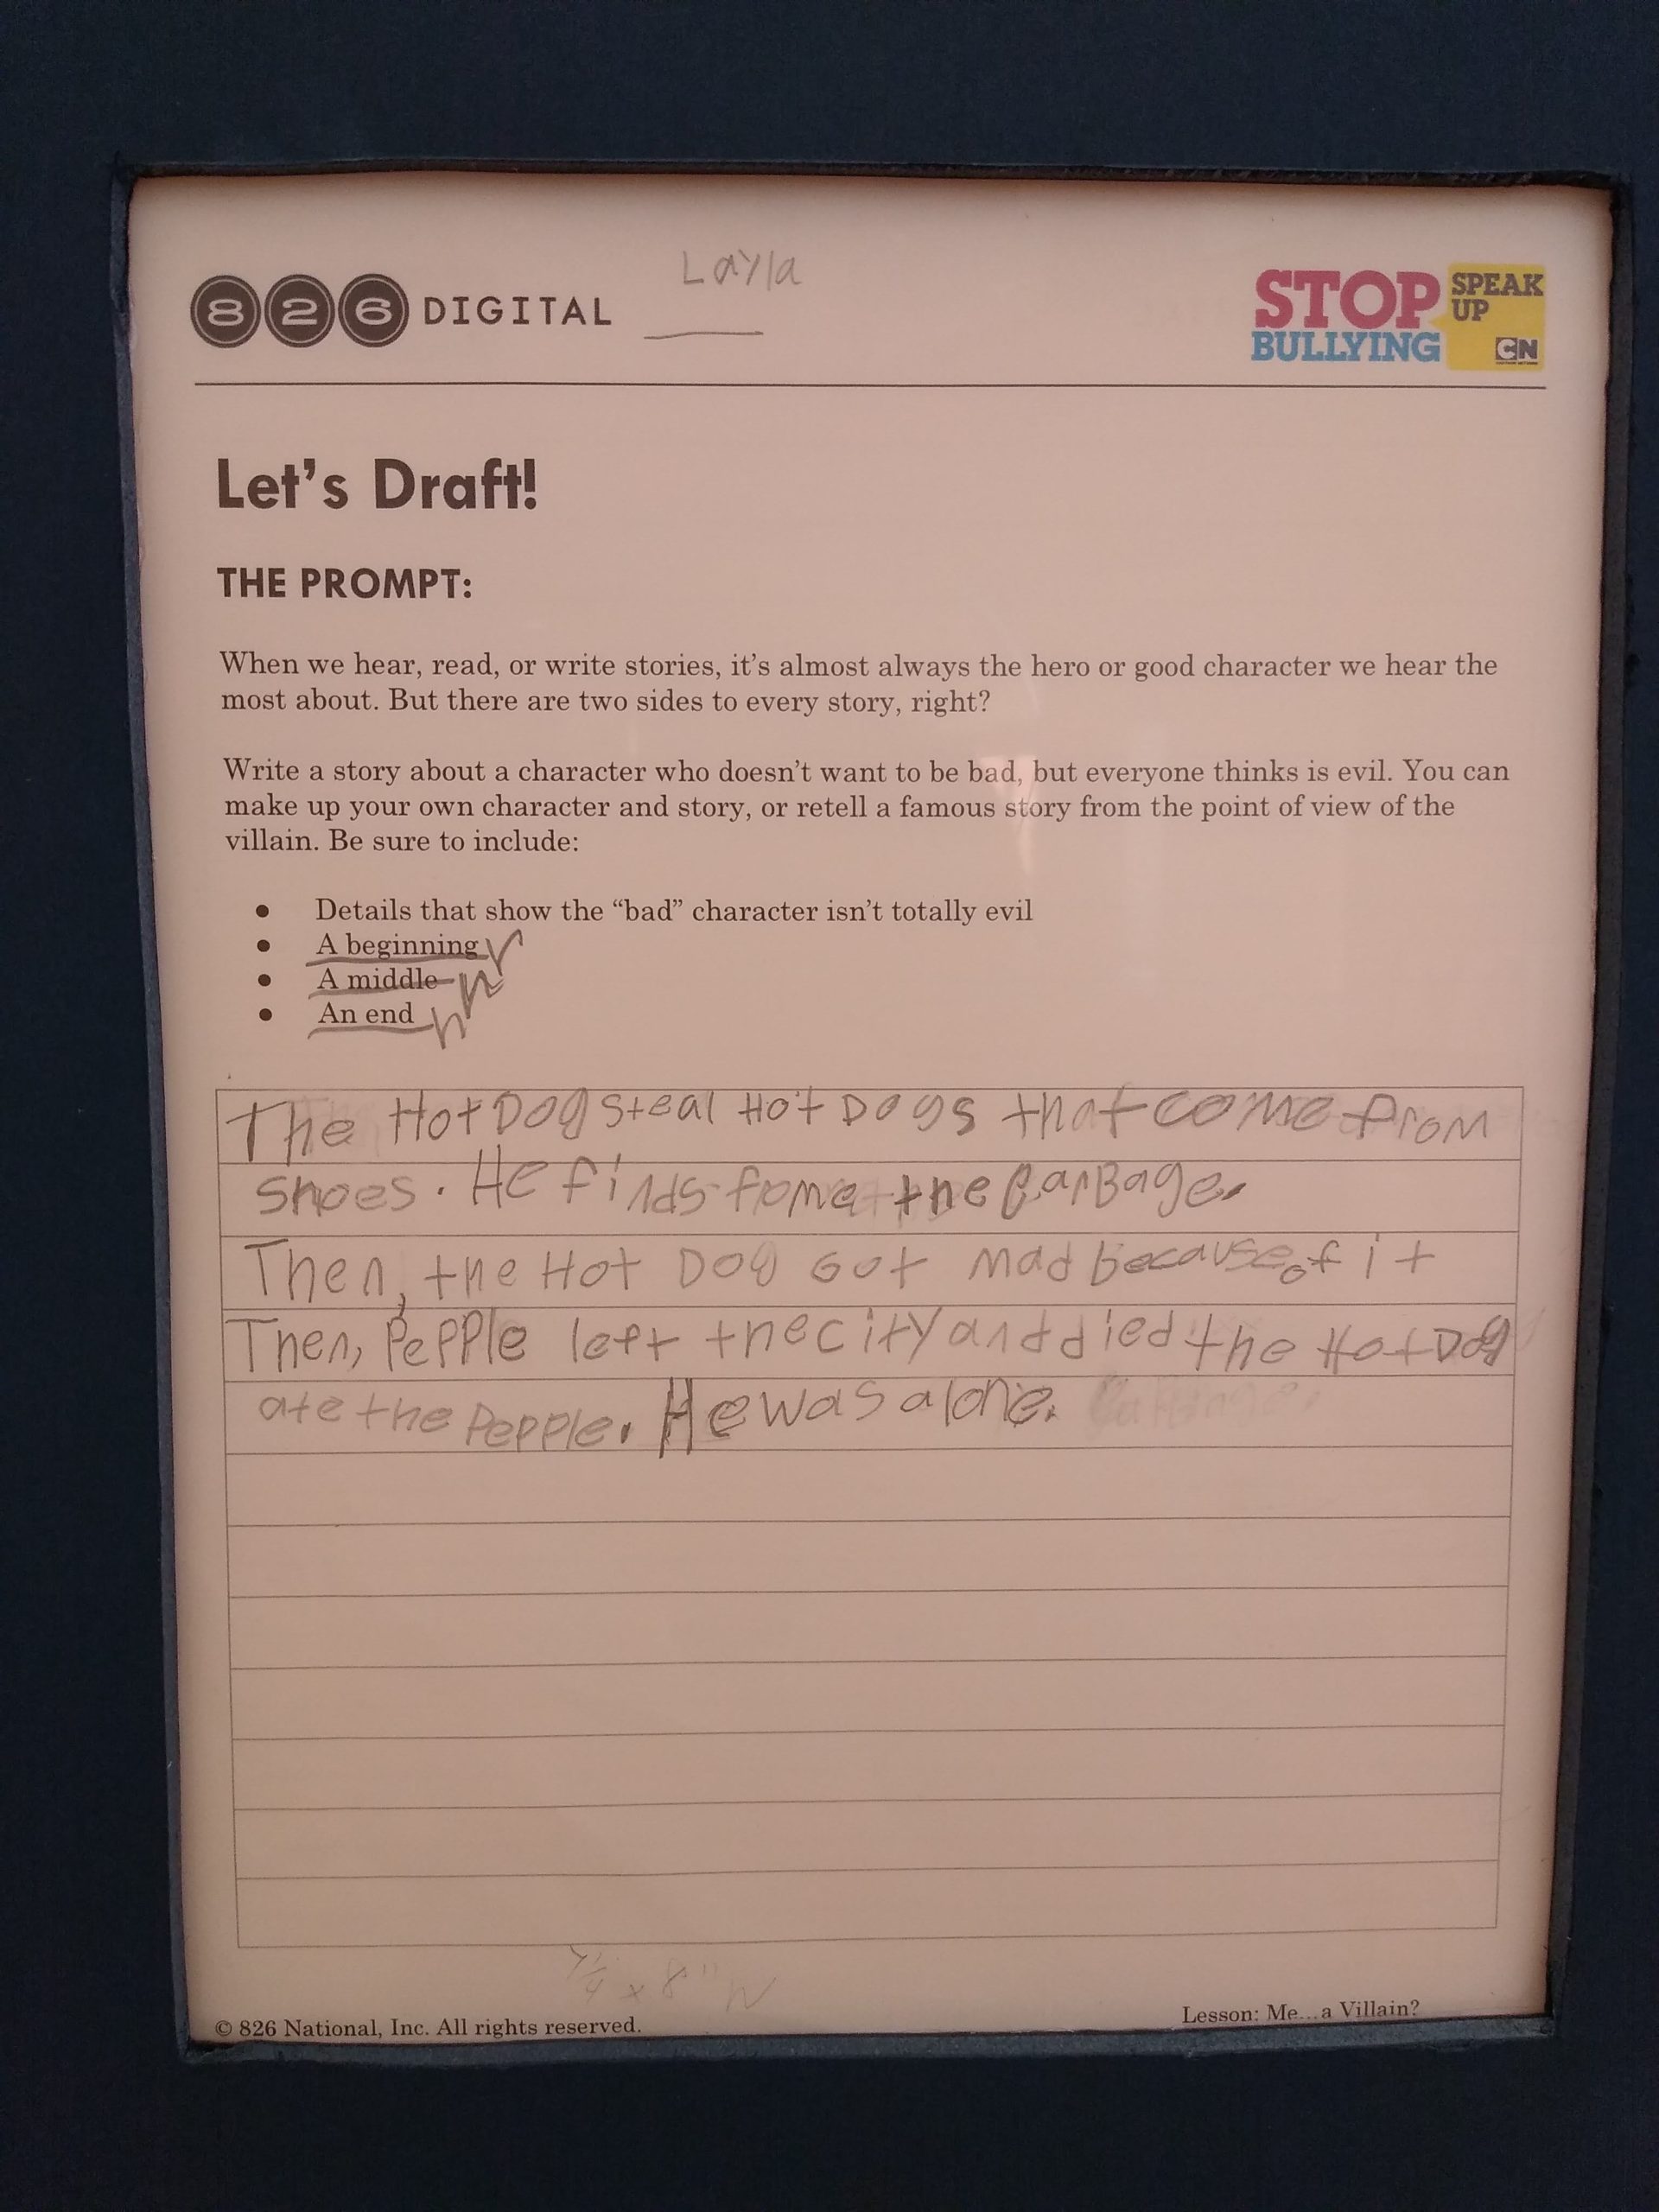 Layla
826 DIGITAL
STOP BULLYING
SPEAK UP
CN
Let's Draft!
THE PROMPT:
When we hear, read, or write stories, it's almost always the hero or good character we hear the
most about. But there are two sides to every story, right?
Write a story about a character who doesn't want to be bad, but everyone thinks is evil. You can
make up your own character and story, or retell a famous story from the point of view of the
villain. Be sure to include:
• Details that show the "bad" character isn't totally evil
• A beginning
• A middle
• An end
The Hot Dog steal Hot Dogs that come from
shoes. He finds fome the garBage.
Then, the Hot Dog Got mad because of it
Then, Pepple left the city and died the Hot Dog
ate the Pepple. He was alone.
© 826 National, Inc. All rights reserved.
Lesson: Me...a Villain?